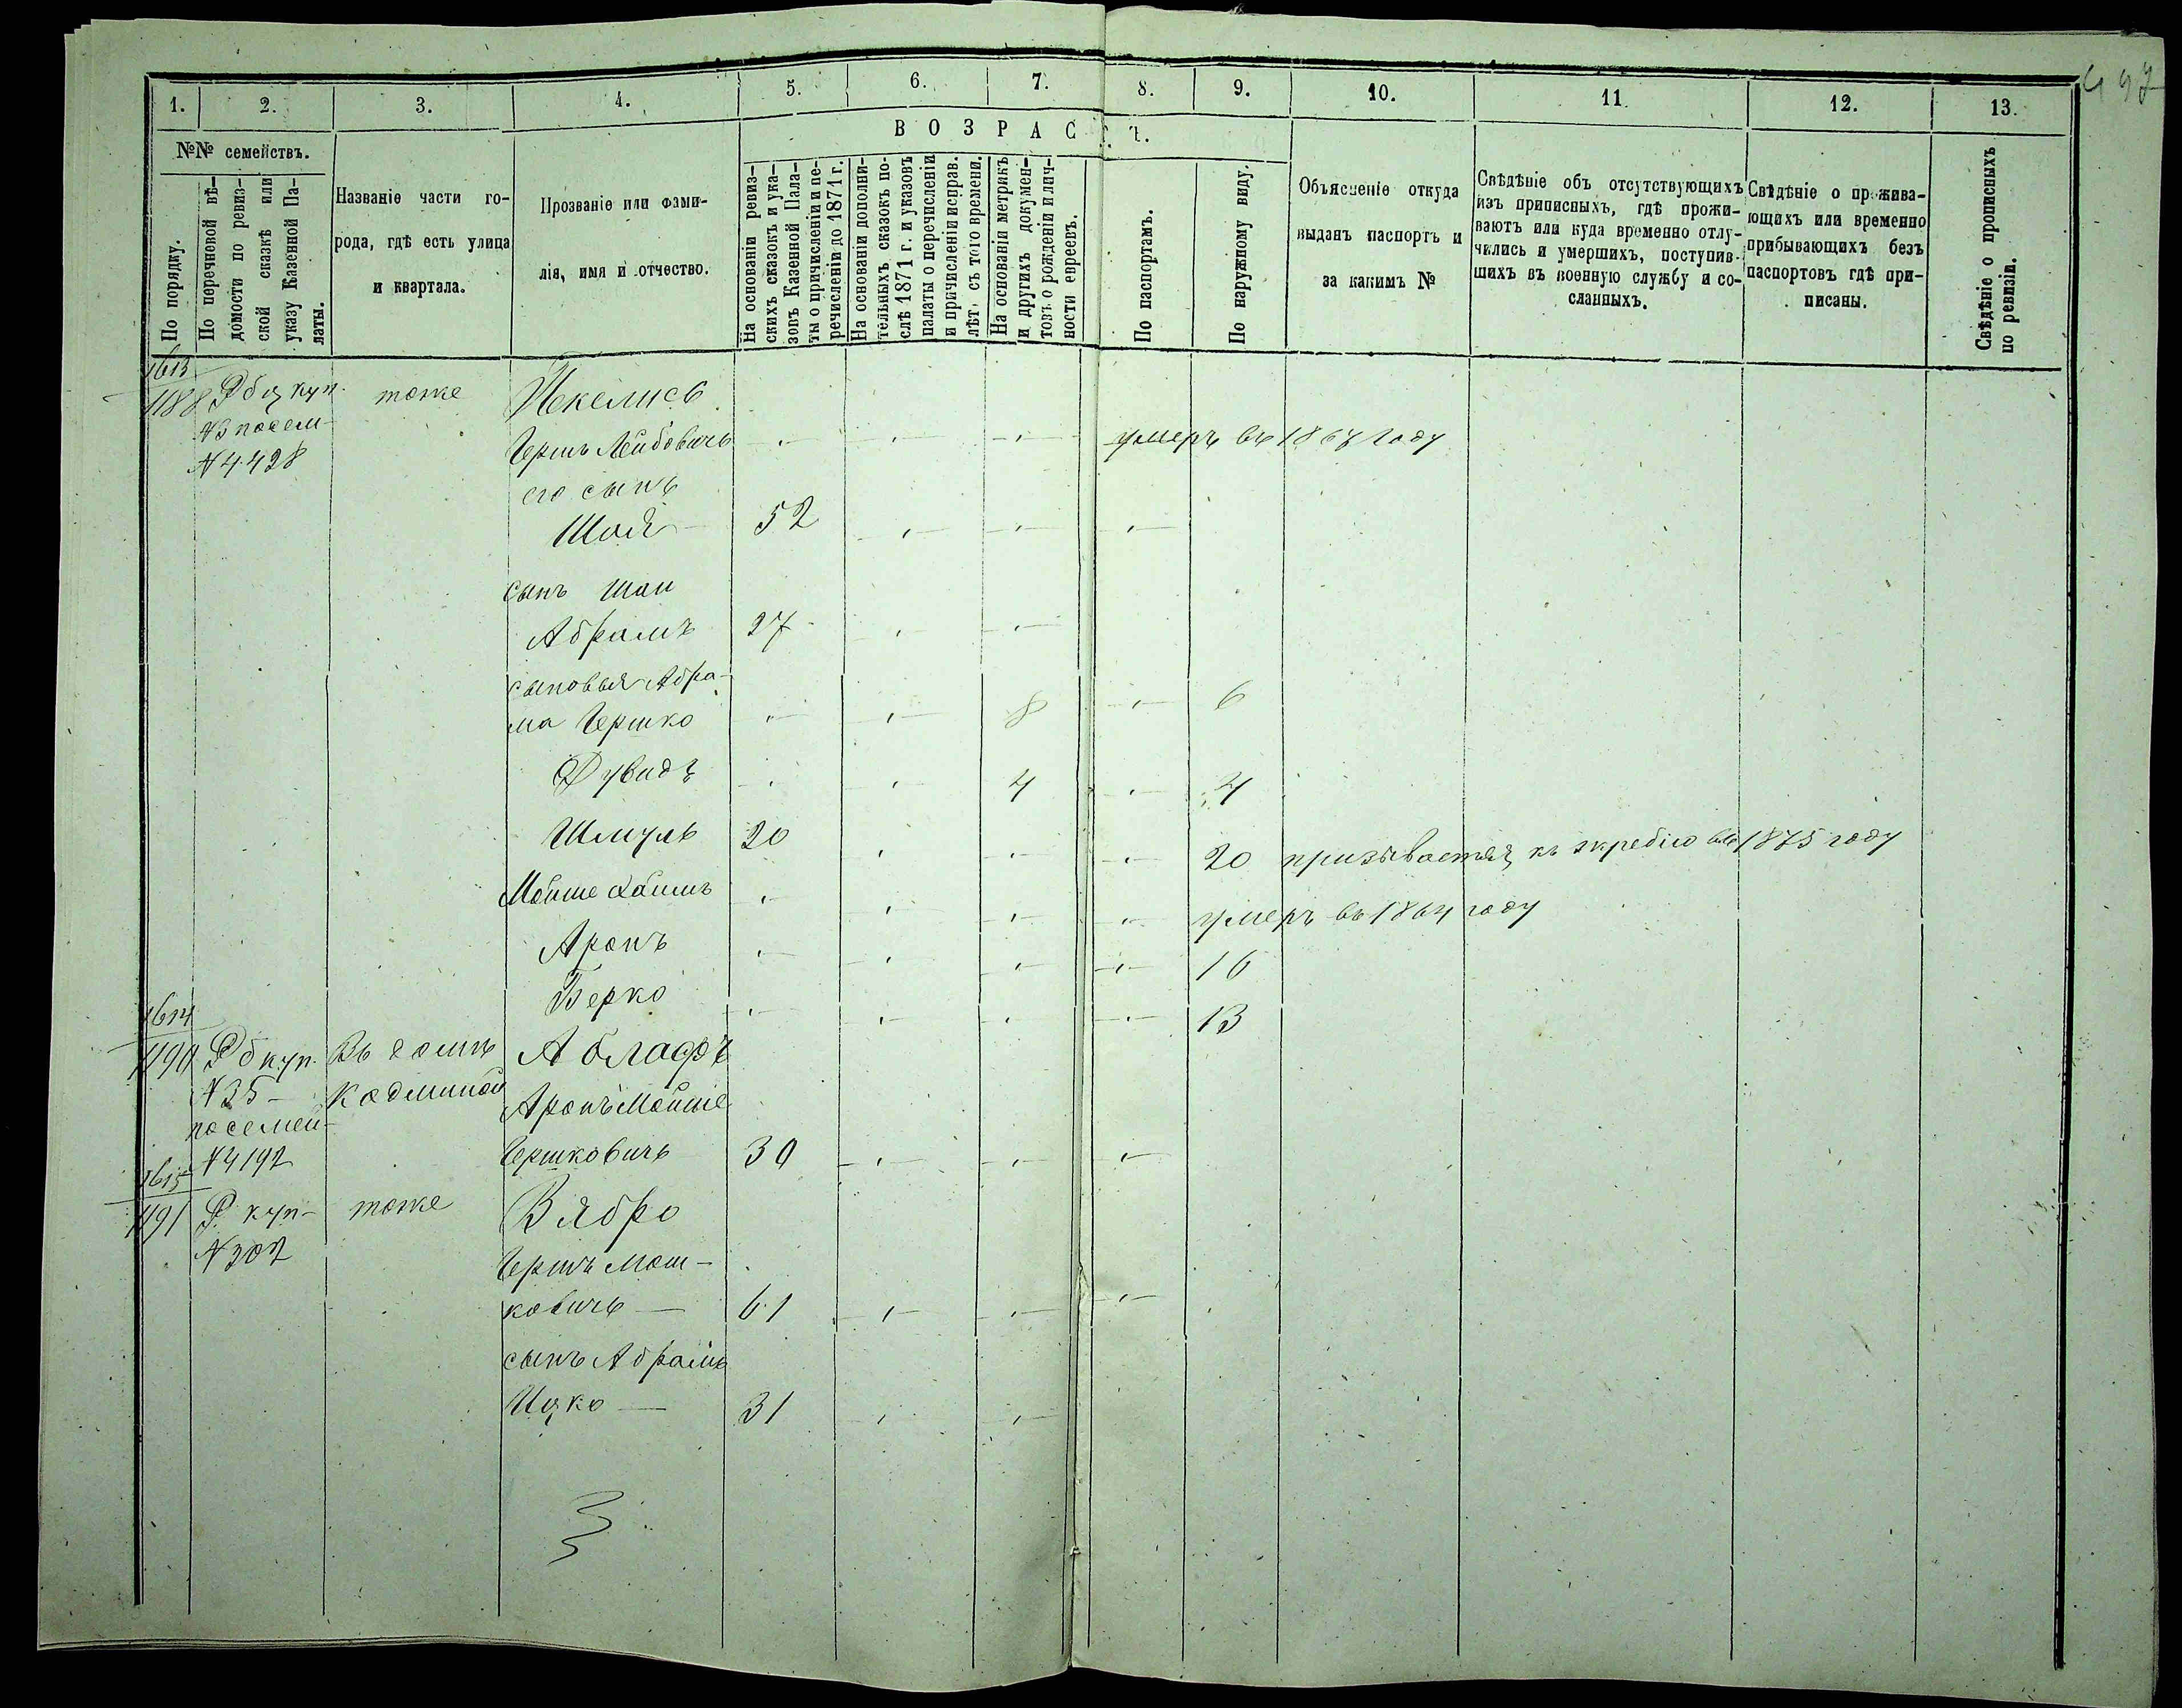 1. 2. 3. 4. 5. 6. 7. 8. 9. 10. 11. 12. 13.
ВОЗРАСТ.
№№ семействъ.
По порядку.
По перечневой вѣ-
домости по ревиз-
ской сказкѣ или
указу Казенной Па-
латы.
Названіе части го-
рода, гдѣ есть улица
и квартала.
Прозваніе или фами-
лія, имя и отчество.
На основаніи ревиз-
скихъ сказокъ и ука-
зовъ Казенной Пала-
ты о причисленіи и пе-
речисленіи до 1871 г.
На основаніи дополни-
тельныхъ сказокъ по-
слѣ 1871 г. и указовъ
палаты о перечисленіи
и причисленіи исправ.
лѣт. съ того времени.
На основаніи метрикъ
и другихъ докумен-
товъ о рожденіи и лич-
ности евреевъ.
По паспортамъ.
По наружному виду.
Объясненіе откуда
выданъ паспортъ и
за какимъ №
Свѣдѣніе объ отсутствующихъ
изъ приписныхъ, гдѣ прожи-
ваютъ или куда временно отлу-
чились и умершихъ, поступив-
шихъ въ военную службу и со-
сланныхъ.
Свѣдѣніе о прожива-
ющихъ или временно
прибывающихъ безъ
паспортовъ гдѣ при-
писаны.
Свѣдѣніе о прописныхъ
по ревизіи.
1613
1188 куп. тоже Икелисъ
№3 посем-
№4428 Гершъ Лейбовичъ умеръ въ 1867 году
его сынъ
Шая 52
сынъ Шаи
Абрамъ 27
сыновья Абра-
ма Гершко 8 6
Дувидъ 4 4
Шмуль 20 20 призывается къ жребію въ 1875 году
Мойше Хаимъ умеръ въ 1864 году
Аронъ 16
Берко 13
1614
1190 Рб куп. Въ домѣ Аблафъ
№35- Кодминой Аронъ Мойше
посемей-
№4192 Гершковичъ 30
1615
1191 Р. куп- тоже Вябро
№307 Гершъ Мош-
ковичъ 61
сынъ Абрамъ
Ицко 31